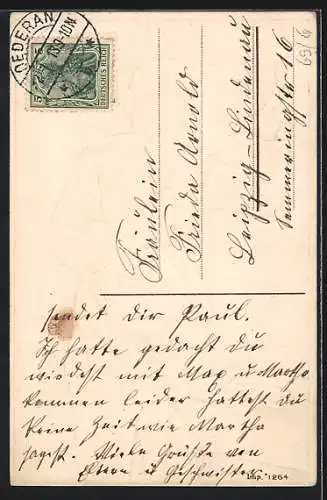 OEDERAN
10-11N
5
DEUTSCHES REICH
5
69/6
Fräulein
Frieda Arnold
Leipzig-Lindenau
Demmeringstr 16
sendet dir Paul.
Ich hatte gedacht du
wirdest mit Max u Martha
kommen leider hattest du
keine Zeit wie Martha
sagst. Viele Grüße von
Eltern u Geschwister.
Imp. 1264